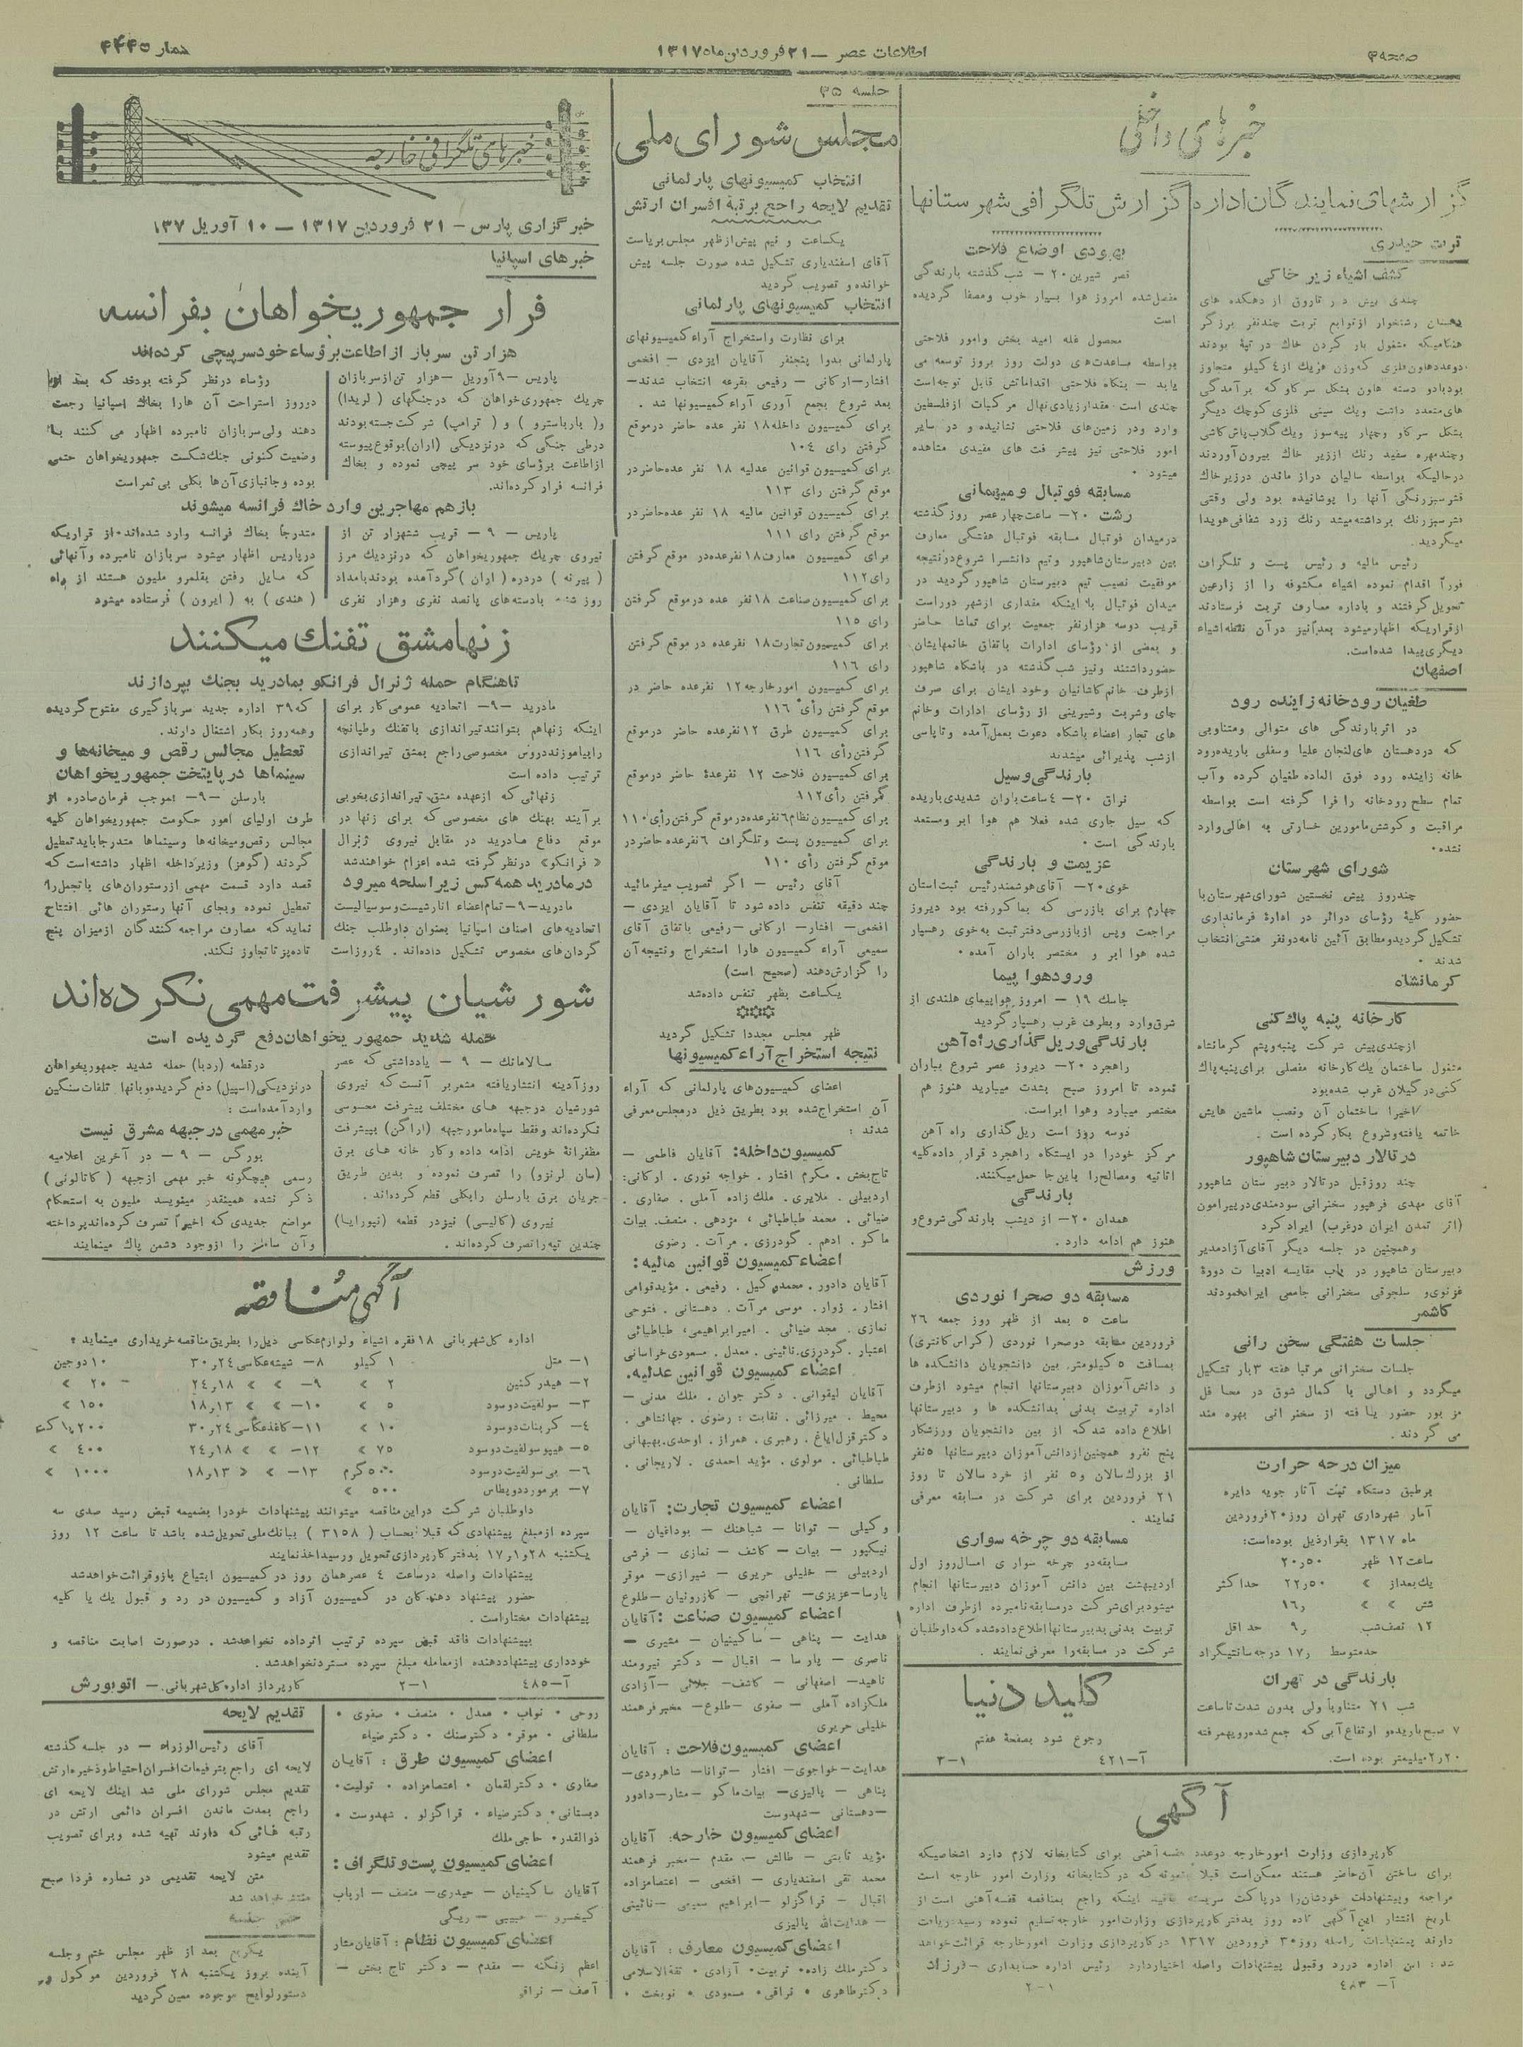 صفحه ۳
اطلاعات عصر — ۲۱ فروردین ماه ۱۳۱۷
شمار ۳۴۴۵
خبرهای داخلی
گزارشهای نمایندگان اداره
تربت حیدری
کشف اشیاء زیر خاکی
چندی پیش در تاروق از دهکده های
رشتخوار از توابع تربت چند نفر برزگر
هنگامیکه مشغول بار کردن خاک در تپه بودند
رئیس مالیه و رئیس پست و تلگراف
فوراً اقدام نموده اشیاء مکشوفه را از زارعین
تحویل گرفتند و باداره معارف تربت فرستادند
از قراریکه اظهار میشود بعداً نیز در آن نقطه اشیاء
دیگری پیدا شده‌است.
اصفهان
طغیان رودخانه زاینده رود
در اثر بارندگی های متوالی و متناوبی
که در دهستان های لنجان علیا و سفلی باریده رود
خانه زاینده رود فوق العاده طغیان کرده و آب
تمام سطح رودخانه را فرا گرفته است بواسطه
مراقبت و کوشش مامورین خسارتی به اهالی وارد
نشده.
شورای شهرستان
چند روز پیش نخستین شورای شهرستان با
حضور کلیهٔ رؤسای دوائر در ادارهٔ فرمانداری
تشکیل گردید و مطابق آئین نامه دو نفر منشی انتخاب
شدند.
کرمانشاه
کارخانه پنبه پاک کنی
از چندی پیش شرکت پنبه و پشم کرمانشاه
مشغول ساختمان یک کارخانه مفصلی برای پنبه پاک
کنی در گیلان غرب شده بود
اخیراً ساختمان آن و نصب ماشین هایش
خاتمه یافته و شروع بکار کرده است.
در تالار دبیرستان شاهپور
چند روز قبل در تالار دبیرستان شاهپور
آقای مهدی فرهپور سخنرانی سودمندی در پیرامون
(اثر تمدن ایران در غرب) ایراد کرد
و همچنین در جلسه دیگر آقای آزاد مدیر
دبیرستان شاهپور در باب مقایسه ادبیات دورهٔ
غزنوی و سلجوقی سخنرانی جامعی ایراد نمودند
کاشمر
جلسات هفتگی سخن رانی
جلسات سخنرانی مرتباً هفته ۳ بار تشکیل
میگردد و اهالی با کمال شوق در محافل
مزبور حضور یافته از سخنرانی بهره مند
می گردند.
میزان درجه حرارت
برطبق دستگاه ثبت آثار جویه دایره
آمار شهرداری تهران روز ۲۰ فروردین
ماه ۱۳۱۷ بقرار ذیل بوده‌است:
ساعت ۱۲ ظهر ۲۰ر۵۰
یک بعد از » ۲۲ر۵۰ حداکثر
شش » » ۱۶ر
۱۲ نصف شب ۹ر حداقل
حد متوسط ۱۷ر درجه سانتیگراد
بارندگی در تهران
شب ۲۱ متناوباً ولی بدون شدت تا ساعت
۷ صبح باریده و ارتفاع آبی که جمع شده رویهمرفته
۲ر۲۰ میلیمتر بوده است.
گزارش تلگرافی شهرستانها
بهبودی اوضاع فلاحت
قصر شیرین ۲۰ — شب گذشته بارندگی
مفصل شده امروز هوا بسیار خوب و مصفا گردیده
است
محصول غله امید بخش و امور فلاحتی
بواسطه مساعدت‌های دولت روز بروز توسعه می
یابد — بنگاه فلاحتی اقداماتش قابل توجه است
چندی است مقدار زیادی نهال مرکبات از فلسطین
وارد و در زمین‌های فلاحتی نشانیده و در سایر
امور فلاحتی نیز پیشرفت های مفیدی مشاهده
میشود.
مسابقه فوتبال و میهمانی
رشت ۲۰ — ساعت چهار عصر روز گذشته
در میدان فوتبال مسابقه فوتبال هفتگی معارف
بین دبیرستان شاهپور و تیم دانشسرا شروع در نتیجه
موفقیت نصیب تیم دبیرستان شاهپور گردید در
میدان فوتبال با اینکه مقداری از شهر دور است
قریب دو سه هزار نفر جمعیت برای تماشا حاضر
و بعضی از رؤسای ادارات باتفاق خانمهایشان
حضور داشتند و نیز شب گذشته در باشگاه شاهپور
از طرف خانم کاشانیان و خود ایشان برای صرف
چای و شربت و شیرینی از رؤسای ادارات و خانم
های تجار اعضاء باشگاه دعوت بعمل آمده و تا پاسی
از شب پذیرائی میشدند
بارندگی و سیل
نراق ۲۰ — ۴ ساعت باران شدیدی باریده
که سیل جاری شده فعلا هم هوا ابر و مستعد
بارندگی است.
عزیمت و بارندگی
خوی ۲۰ — آقای هوشمند رئیس ثبت استان
چهارم برای بازرسی که بماکو رفته بود دیروز
مراجعت و پس از بازرسی دفتر ثبت به خوی رهسپار
شده هوا ابر و مختصر باران آمده.
ورود هواپیما
جاسک ۱۹ — امروز هواپیمای هلندی از
شرق وارد و بطرف غرب رهسپار گردید
بارندگی و ریل گذاری راه آهن
راهجرد ۲۰ — دیروز عصر شروع بباران
نموده تا امروز صبح بشدت میبارید هنوز هم
مختصر میبارد و هوا ابر است.
دو سه روز است ریل گذاری راه آهن
مرکز خود را در ایستگاه راهجرد قرار داده کلیه
اثاثیه و مصالح را باین جا حمل میکنند.
بارندگی
همدان ۲۰ — از دیشب بارندگی شروع و
هنوز هم ادامه دارد.
ورزش
مسابقه دو صحرا نوردی
ساعت ۵ بعد از ظهر روز جمعه ۲۶
فروردین مسابقه دو صحرا نوردی (کراس کانتری)
بمسافت ۵ کیلومتر بین دانشجویان دانشکده ها
و دانش آموزان دبیرستانها انجام میشود از طرف
اداره تربیت بدنی بدانشکده ها و دبیرستانها
اطلاع داده شد که از بین دانشجویان ورزشکار
پنج نفر و همچنین از دانش آموزان دبیرستانها ۵ نفر
از بزرگ سالان و ۵ نفر از خرد سالان تا روز
۲۱ فروردین برای شرکت در مسابقه معرفی
نمایند.
مسابقه دو چرخه سواری
مسابقه دو چرخه سواری امسال روز اول
اردیبهشت بین دانش آموزان دبیرستانها انجام
میشود برای شرکت در مسابقه نامبرده از طرف اداره
تربیت بدنی بدبیرستانها اطلاع داده شده که داوطلبان
شرکت در مسابقه را معرفی نمایند.
کلید دنیا
رجوع شود بصفحهٔ هفتم
آ—۴۲۱ ۳—۱
آگهی
کارپردازی وزارت امور خارجه دو عدد قفسه آهنی برای کتابخانه لازم دارد اشخاصیکه
آ—۴۸۳ ۲—۱
جلسه ۳۵
مجلس شورای ملی
انتخاب کمیسیونهای پارلمانی
تقدیم لایحه راجع برتبهٔ افسران ارتش
یکساعت و نیم پیش از ظهر مجلس بریاست
آقای اسفندیاری تشکیل شده صورت جلسه پیش
خوانده و تصویب گردید
انتخاب کمیسیونهای پارلمانی
برای نظارت و استخراج آراء کمیسیونهای
پارلمانی بدواً پنجنفر آقایان ایزدی — افخمی
افشار — ارکانی — رفیعی بقرعه انتخاب شدند —
بعد شروع بجمع آوری آراء کمیسیونها شد.
برای کمیسیون داخله ۱۸ نفر عده حاضر در موقع
گرفتن رای ۱۰۴
برای کمیسیون قوانین عدلیه ۱۸ نفر عده حاضر در
موقع گرفتن رای ۱۱۳
برای کمیسیون قوانین مالیه ۱۸ نفر عده حاضر در
موقع گرفتن رای ۱۱۱
برای کمیسیون معارف ۱۸ نفر عده در موقع گرفتن
رای ۱۱۲
برای کمیسیون صناعت ۱۸ نفر عده در موقع گرفتن
رای ۱۱۵
برای کمیسیون تجارت ۱۸ نفر عده در موقع گرفتن
رای ۱۱۶
برای کمیسیون امور خارجه ۱۲ نفر عده حاضر در
موقع گرفتن رأی ۱۱۶
برای کمیسیون طرق ۱۲ نفر عده حاضر در موقع
گرفتن رأی ۱۱۶
برای کمیسیون فلاحت ۱۲ نفر عدهٔ حاضر در موقع
گرفتن رأی ۱۱۲
برای کمیسیون نظام ۶ نفر عده در موقع گرفتن رأی ۱۱۰
برای کمیسیون پست و تلگراف ۶ نفر عده حاضر در
موقع گرفتن رأی ۱۱۰
آقای رئیس — اگر تصویب میفرمائید
چند دقیقه تنفس داده شود تا آقایان ایزدی —
افخمی — افشار — ارکانی — رفیعی باتفاق آقای
سمیعی آراء کمیسیون هارا استخراج و نتیجه آن
را گزارش دهند (صحیح است)
یکساعت بظهر تنفس داده شد
ظهر مجلس مجدداً تشکیل گردید
نتیجه استخراج آراء کمیسیونها
اعضای کمیسیون‌های پارلمانی که آراء
آن استخراج شده بود بطریق ذیل در مجلس معرفی
شدند:
کمیسیون داخله: آقایان فاطمی —
تاج‌بخش. مکرم افشار. خواجه نوری. ارکانی:
اردبیلی. ملایری. ملک زاده آملی. صفاری.
ضیائی. محمد طباطبائی. مژدهی. منصف. بیات
ماکو. ادهم. گودرزی. مرآت. رضوی
اعضاء کمیسیون قوانین مالیه:
آقایان دادور. محمد وکیل. رفیعی. مؤید قوامی
افشار. زوار. موسی مرآت. دهستانی. فتوحی
نمازی. مجد ضیائی. امیر ابراهیمی. طباطبائی
اعتبار. گودرزی. نائینی. معدل. مسعودی خراسانی
اعضاء کمیسیون قوانین عدلیه.
آقایان لیقوانی. دکتر جوان. ملک مدنی —
محیط. میرزائی. نقابت. رضوی. جهانشاهی.
دکتر قزل ایاغ. رهبری. همراز. اوحدی. بهبهانی
طباطبائی. مولوی. مؤید احمدی. لاریجانی.
سلطانی.
اعضاء کمیسیون تجارت: آقایان
وکیلی — توانا — شباهنک — بوداغیان —
نیکپور — بیات — کاشف — نمازی — فرشی
اردبیلی — خلیلی — حریری — شیرازی — موقر
پارسا — عزیزی — تهرانچی — کازرونیان — طلوع
اعضاء کمیسیون صناعت: آقایان
هدایت — پناهی — ساکینیان — مشیری —
ناصری — پارسا — اقبال — دکتر نیرومند
ناهید — اصفهانی — کاشف — جلائی — آزادی
ملکزاده آملی — صفوی — طلوع — مخبر فرهمند
خلیلی حریری
اعضای کمیسیون فلاحت: آقایان
هدایت — خواجوی — افشار — توانا — شاهرودی —
پناهی — پالیزی — بیات ماکو — مشار — دادور
— دهستانی — شهدوست
اعضای کمیسیون خارجه: آقایان
مؤید ثابتی — طالش — مقدم — مخبر فرهمند
محمد تقی اسفندیاری — افخمی — اعتصام‌زاده
اقبال — قراگزلو — ابراهیم سمیعی — نائینی
— هدایت‌الله پالیزی
اعضای کمیسیون معارف: آقایان
دکتر ملک زاده. تربیت. آزادی. ثقةالاسلامی
دکتر طاهری. نراقی. مسعودی. نوبخت.
روحی. نواب. معدل. منصف. صفوی.
سلطانی. موقر. دکتر سنک. دکتر ضیاء
اعضای کمیسیون طرق: آقایان
صفاری. دکتر لقمان. اعتصام‌زاده. تولیت.
دبستانی. دکتر ضیاء. قراگزلو. شهدوست.
ذوالقدر. حاجی ملک
اعضای کمیسیون پست و تلگراف:
آقایان ساکینیان — حیدری — منصف — ارباب
کیخسرو — حبیبی — ریگی
اعضای کمیسیون نظام: آقایان مشار
اعظم زنگنه — مقدم — دکتر تاج بخش —
آصف — نراقی
تقدیم لایحه
آقای رئیس‌الوزراء — در جلسه گذشته
لایحه ای راجع بترفیعات افسران احتیاط و ذخیره ارتش
تقدیم مجلس شورای ملی شد اینک لایحه ای
راجع بمدت ماندن افسران دائمی ارتش در
رتبه هائی که دارند تهیه شده و برای تصویب
تقدیم میشود
متن لایحه تقدیمی در شماره فردا صبح
منتشر خواهد شد
ختم جلسه
یکربع بعد از ظهر مجلس ختم و جلسه
آینده بروز یکشنبه ۲۸ فروردین موکول و
دستور لوایح موجوده معین گردید
خبرهای تلگرافی خارجه
خبرگزاری پارس — ۲۱ فروردین ۱۳۱۷ — ۱۰ آوریل ۱۳۷
خبرهای اسپانیا
فرار جمهوریخواهان بفرانسه
هزار تن سرباز از اطاعت برؤساء خود سرپیچی کرده‌اند
پاریس — ۹ آوریل — هزار تن از سربازان
چریک جمهوری‌خواهان که در جنگهای (لریدا)
و (بارباسترو) و (ترامپ) شرکت جسته بودند
درطی جنگی که در نزدیکی (اران) بوقوع پیوسته
از اطاعت برؤسای خود سر پیچی نموده و بخاک
فرانسه فرار کرده‌اند.
رؤساء درنظر گرفته بودند که بعد از
دیروز استراحت آن هارا بخاک اسپانیا رجعت
دهند ولی سربازان نامبرده اظهار می کنند با
وضعیت کنونی جنک شکست جمهوریخواهان حتمی
بوده و جانبازی آن‌ها بکلی بی ثمر است
بازهم مهاجرین وارد خاک فرانسه میشوند
پاریس — ۹ — قریب ششهزار تن از
نیروی چریک جمهوریخواهان که در نزدیک مرز
(پیرنه) در دره (اران) گرد آمده بودند بامداد
روز شنبه بادسته‌های پانصد نفری و هزار نفری
متدرجاً بخاک فرانسه وارد شده‌اند. از قراریکه
در پاریس اظهار میشود سربازان نامبرده و آنهائی
که مایل رفتن بقلمرو ملیون هستند از راه
(هندی) به (ایرون) فرستاده میشود
زنها مشق تفنک میکنند
تا هنگام حمله ژنرال فرانکو بمادرید بجنک بپردازند
مادرید — ۹ — اتحادیه عمومی کار برای
اینکه زنها هم بتوانند تیراندازی باتفنک و طپانچه
را بیاموزند دروس مخصوصی راجع بمشق تیراندازی
ترتیب داده است
زنهائی که از عهده مشق تیراندازی بخوبی
برآیند بهنک های مخصوصی که برای زنها در
موقع دفاع مادرید در مقابل نیروی ژنرال
«فرانکو» درنظر گرفته شده اعزام خواهند شد
در مادرید همه کس زیر اسلحه میرود
مادرید — ۹ — تمام اعضاء انارشیست و سوسیالیست
اتحادیه‌های اصناف اسپانیا بعنوان داوطلب جنک
گردان‌های مخصوص تشکیل داده‌اند. ۴ روز است
که ۳۹ اداره جدید سرباز گیری مفتوح گردیده
و همه روز بکار اشتغال دارند.
تعطیل مجالس رقص و میخانه‌ها و
سینماها در پایتخت جمهوریخواهان
بارسلن — ۹ — بموجب فرمان صادره از
طرف اولیای امور حکومت جمهوریخواهان کلیه
مجالس رقص و میخانه‌ها و سینماها متدرجا باید تعطیل
گردند (گومز) وزیر داخله اظهار داشته‌است که
قصد دارد قسمت مهمی از رستوران‌های باتجمل را
تعطیل نموده و بجای آنها رستوران هائی افتتاح
نماید که مصارف مراجعه کنندگان از میزان پنج
تا ده پزتا تجاوز نکند.
شورشیان پیشرفت مهمی نکرده‌اند
حمله شدید جمهوریخواهان دفع گردیده است
سالامانک — ۹ — یادداشتی که عصر
روز آدینه انتشار یافته مشعر بر آنست که نیروی
شورشیان درجبهه های مختلف پیشرفت محسوسی
نکرده‌اند و فقط سپاه مامور جبهه (اراگن) بپیشرفت
مظفرانهٔ خویش ادامه داده و کارخانه های برق
(سان لرنزو) را تصرف نموده و بدین طریق
جریان برق بارسلن را بکلی قطع کرده‌اند.
نیروی (کالیسی) نیز در قطعه (نیورایا)
چندین تپه را تصرف کرده‌اند.
در قطعه (ردبا) حمله شدید جمهوریخواهان
در نزدیکی (اسپیل) دفع گردیده و بانها تلفات سنگین
وارد آمده‌است:
خبر مهمی در جبهه مشرق نیست
بورگس — ۹ — در آخرین اعلامیه
رسمی هیچگونه خبر مهمی از جبهه (کاتالونی)
ذکر نشده همینقدر مینویسد ملیون به استحکام
مواضع جدیدی که اخیراً تصرف کرده‌اند پرداخته
و آن سامان را از وجود دشمن پاک مینمایند
آگهی مناقصه
اداره کل شهربانی ۱۸ فقره اشیاء و لوازم عکاسی ذیل را بطریق مناقصه خریداری مینماید:
۱— متل ۱ کیلو ۸— شیشه عکاسی ۲۴ر۳۰ ۱۰ دوجین
۲— هیدرکنین ۲ » ۹— » » ۱۸ر۲۴ ۲۰ »
۳— سولفیت دو سود ۵ » ۱۰— » » ۱۳ر۱۸ ۱۵۰ »
۴— کربنات دو سود ۱۰ » ۱۱— کاغذ عکاسی ۲۴ر۳۰
۵— هیپو سولفیت دو سود ۷۵ » ۱۲— » » ۱۸ر۲۴ ۴۰۰ »
۶— بی سولفیت دو سود ۵۰۰ گرم ۱۳— » » ۱۳ر۱۸ ۱۰۰۰ »
۷— برمور دو پطاس ۵۰۰ »
داوطلبان شرکت در این مناقصه میتوانند پیشنهادات خود را بضمیمه قبض رسید صدی سه
سپرده از مبلغ پیشنهادی که قبلا بحساب (۳۱۵۸) ببانک ملی تحویل شده باشد تا ساعت ۱۲ روز
یکشنبه ۲۸ر۱ر۱۷ بدفتر کارپردازی تحویل و رسید اخذ نمایند
پیشنهادات واصله در ساعت ۴ عصر همان روز در کمیسیون ابتیاع باز و قرائت خواهد شد
حضور پیشنهاد دهندگان در کمیسیون آزاد و کمیسیون در رد و قبول یک یا کلیه
پیشنهادات مختار است.
بپیشنهادات فاقد قبض سپرده ترتیب اثر داده نخواهد شد. درصورت اصابت مناقصه و
خودداری پیشنهاد دهنده از معامله مبلغ سپرده مسترد نخواهد شد.
آ—۴۸۵ ۲—۱ کارپرداز اداره کل شهربانی — اتوبورش